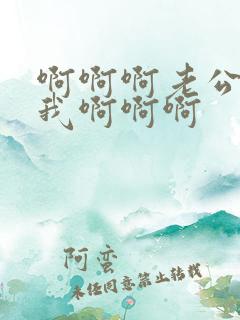 啊啊啊老公
我啊啊啊
阿蛮
未经同意禁止转载